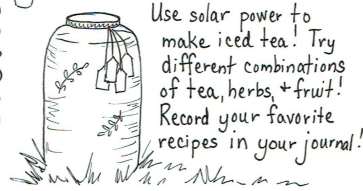 Use solar power to
make iced tea! Try
different combinations
of tea, herbs, + fruit!
Record your favorite
recipes in your journal!